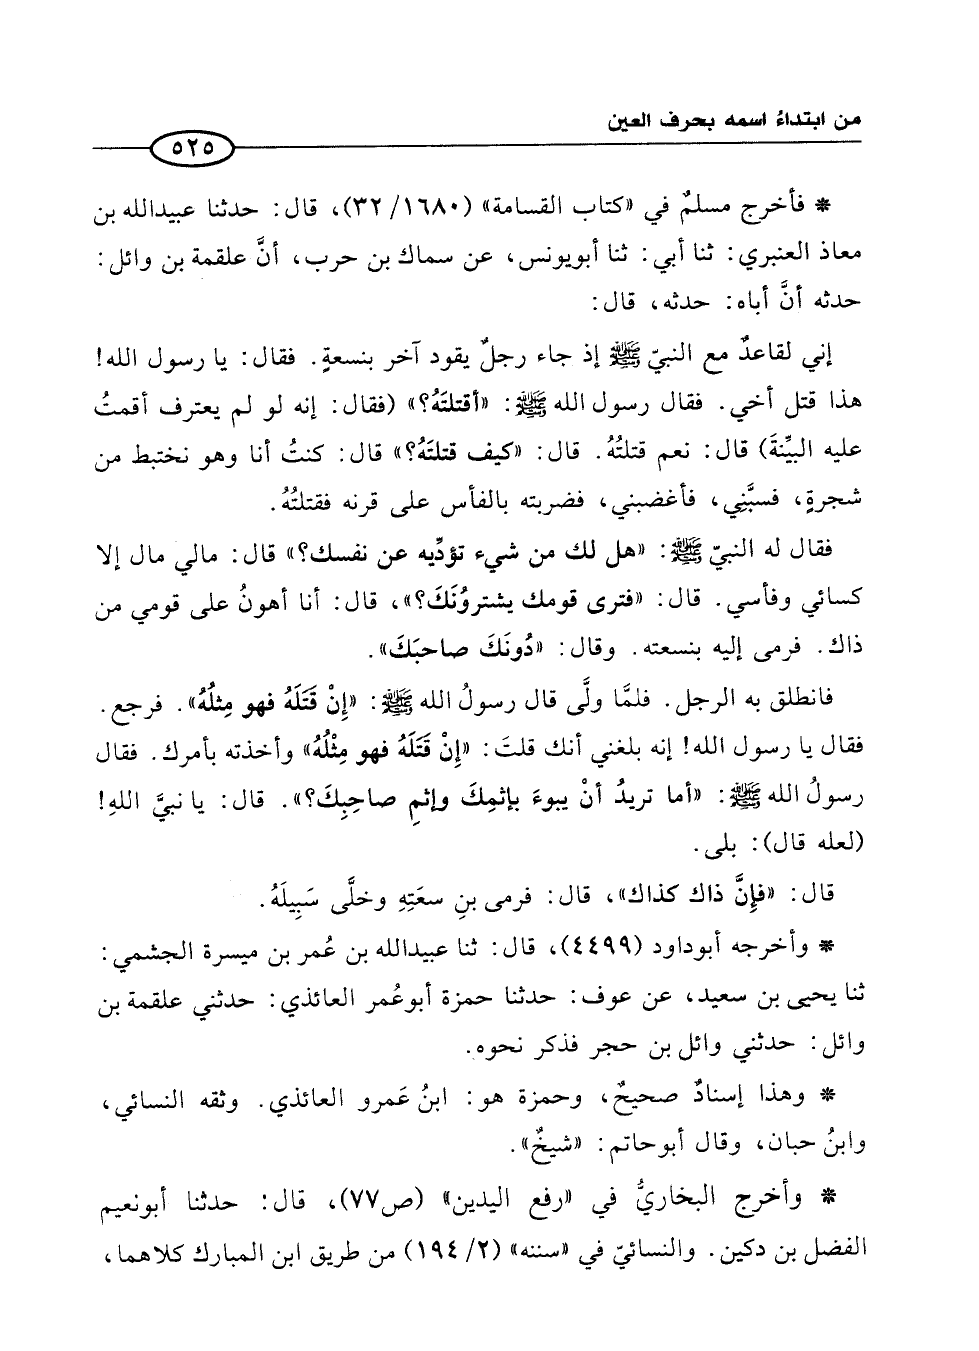 من ابتداءُ اسمه بحرف العين
٥٢٥
* فأخرج مسلمٌ في «كتاب القسامة» (١٦٨٠/ ٣٢)، قال: حدثنا عبيدالله بن
معاذ العنبري: ثنا أبي: ثنا أبويونس، عن سماك بن حرب، أنَّ علقمة بن وائل:
حدثه أنَّ أباه: حدثه، قال:
إني لقاعدٌ مع النبيّ ﷺ إذ جاء رجلٌ يقود آخر بنسعةٍ. فقال: يا رسول الله!
هذا قتل أخي. فقال رسول الله ﷺ: «أقتلتَهُ؟» (فقال: إنه لو لم يعترف أقمتُ
عليه البيِّنةَ) قال: نعم قتلتُهُ. قال: «كيف قتلتَهُ؟» قال: كنتُ أنا وهو نختبط من
شجرةٍ، فسبَّنِي، فأغضبني، فضربته بالفأس على قرنه فقتلتُهُ.
فقال له النبيّ ﷺ: «هل لك من شيء تؤدِّيه عن نفسك؟» قال: مالي مال إلا
كسائي وفأسي. قال: «فترى قومك يشترونَكَ؟»، قال: أنا أهونُ على قومي من
ذاك. فرمى إليه بنسعته. وقال: «دُونَكَ صاحبَكَ».
فانطلق به الرجل. فلمَّا ولَّى قال رسولُ الله ﷺ: «إِنْ قَتَلَهُ فهو مِثلُهُ». فرجع.
فقال يا رسول الله! إنه بلغني أنك قلتَ: «إِنْ قَتَلَهُ فهو مِثْلُهُ» وأخذته بأمرك. فقال
رسولُ الله ﷺ: «أما تريدُ أنْ يبوءَ بإثمِكَ وإثمِ صاحِبِكَ؟». قال: يا نبيَّ اللهِ!
(لعله قال): بلى.
قال: «فإِنَّ ذاك كذاك»، قال: فرمى بنِ سعَتِهِ وخلَّى سَبِيلَهُ.
* وأخرجه أبوداود (٤٤٩٩)، قال: ثنا عبيدالله بن عُمر بن ميسرة الجشمي:
ثنا يحيى بن سعيد، عن عوف: حدثنا حمزة أبوعُمر العائذي: حدثني علقمة بن
وائل: حدثني وائل بن حجر فذكر نحوه.
* وهذا إسنادٌ صحيحٌ، وحمزة هو: ابنُ عَمرو العائذي. وثقه النسائي،
وابنُ حبان، وقال أبوحاتم: «شيخٌ».
* وأخرج البخاريُّ في «رفع اليدين» (ص٧٧)، قال: حدثنا أبونعيم
الفضل بن دكين. والنسائيّ في «سننه» (٢/ ١٩٤) من طريق ابن المبارك كلاهما،